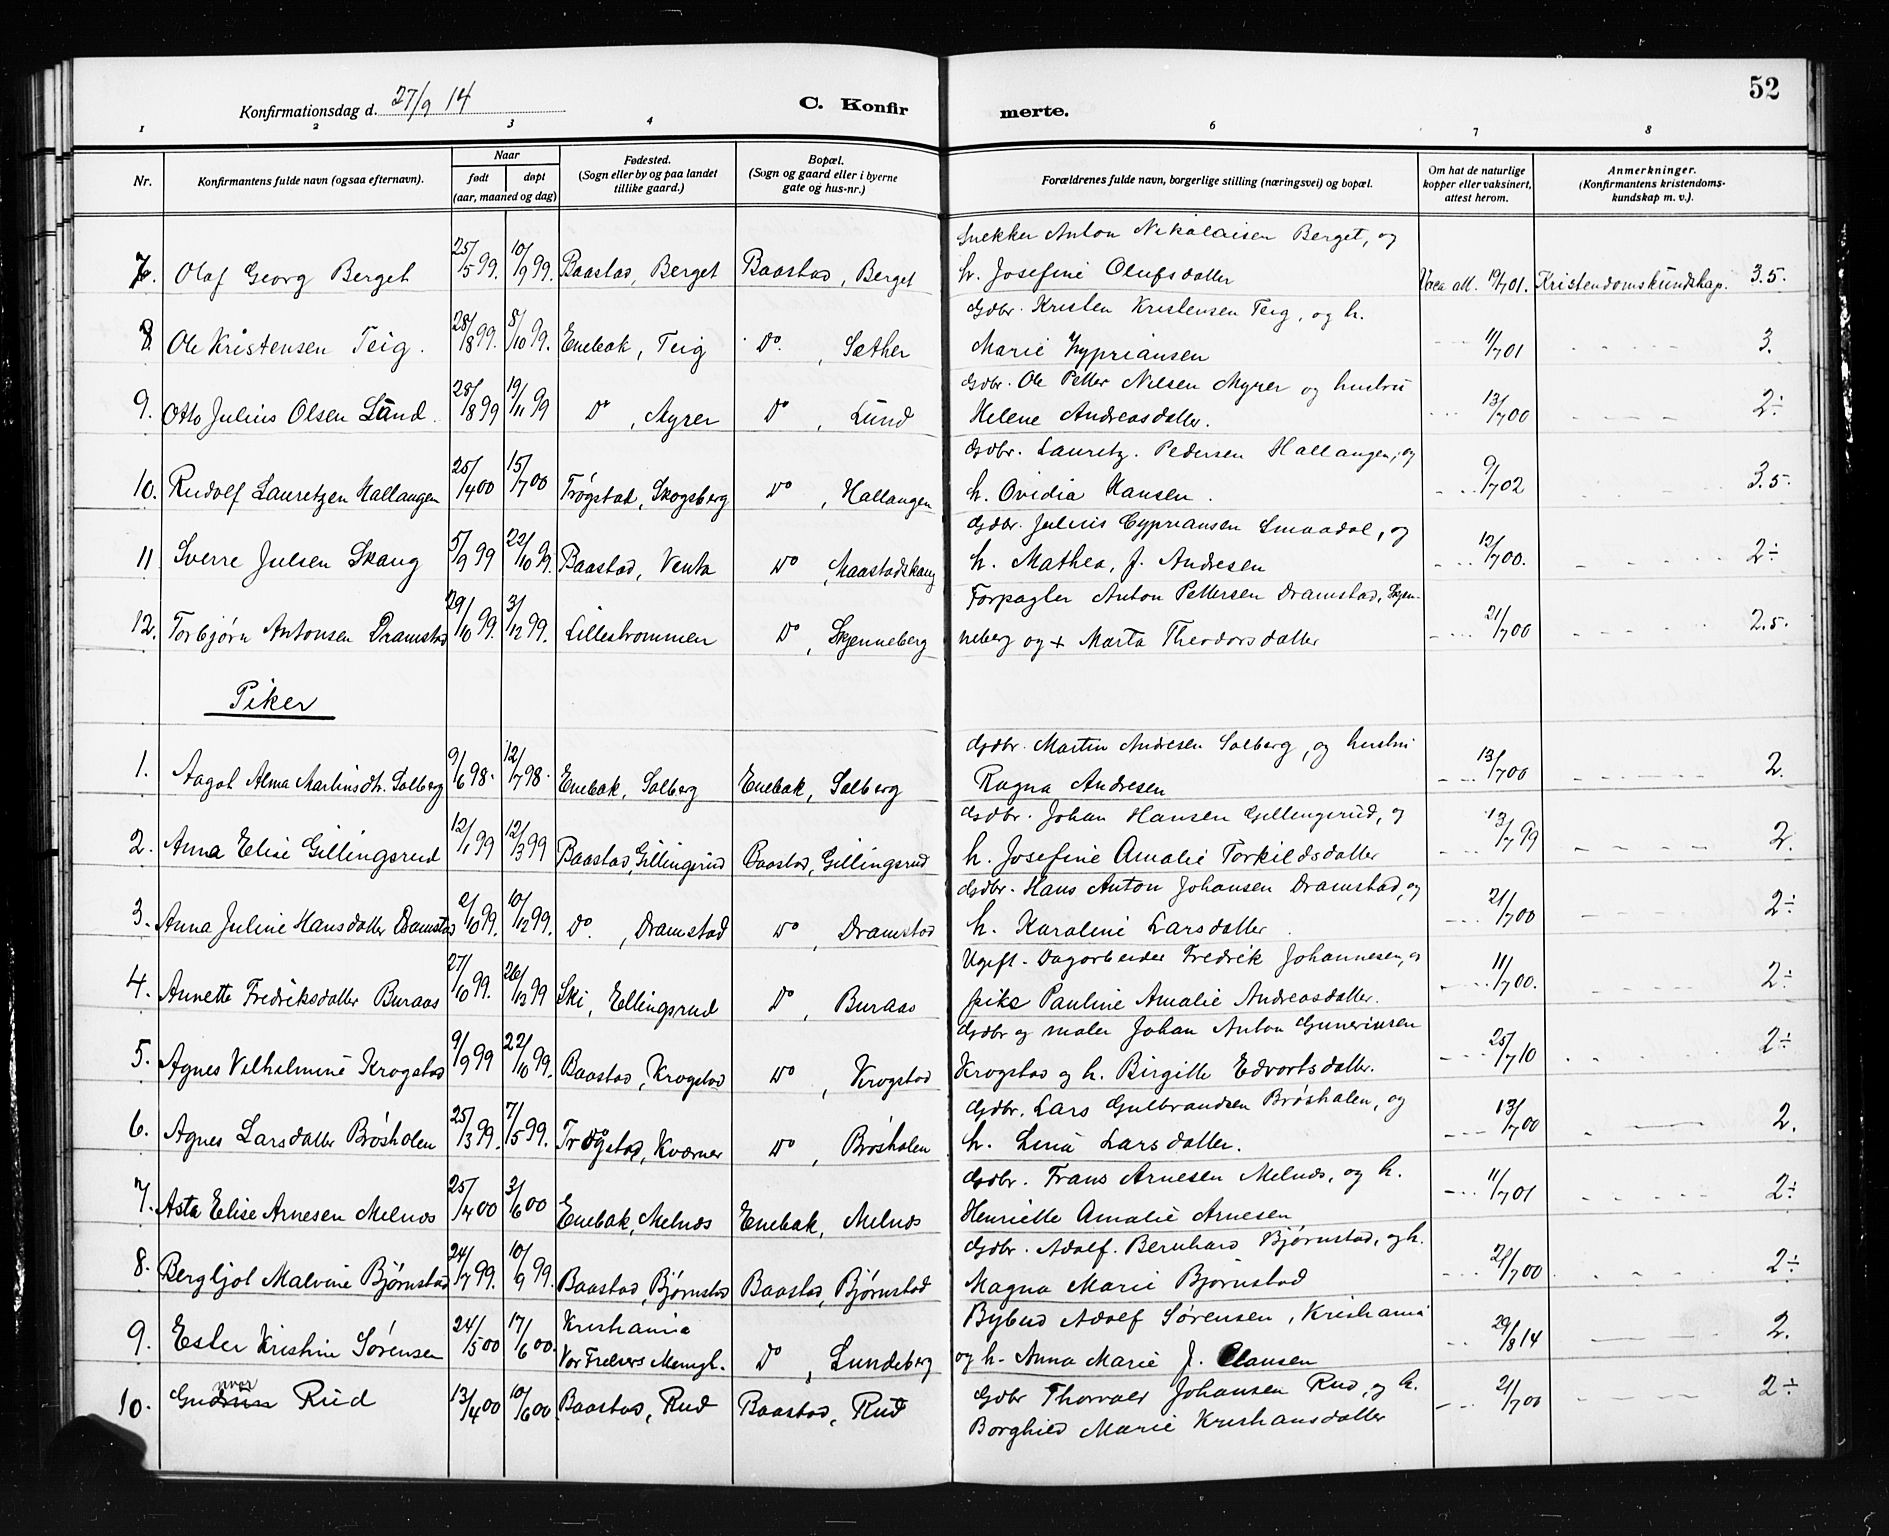 52
Konfirmationsdag d. 27/9 14 C. Konfirmerte.
1 2 3 4 6 7 8
Nr. Konfirmantens fulde navn (ogsaa efternavn). Naar født døpt (aar, maaned og dag) Fødested. (Sogn eller by og paa landet tillike gaard.) Bopæl. (Sogn og gaard eller i byerne gate og hus-nr.) Forældrenes fulde navn, borgerlige stilling (næringsvei) og bopæl. Om hat de naturlige kopper eller vaksinert, attest herom. Anmerkninger. (Konfirmantens kristendoms-kundskap m. v.).
7. Olaf Georg Berget 25/5 99. 10/9 99. Baastad, Berget Baastad, Berget Snekker Anton Nikolaisen Berget, og
h. Josefine Olufsdatter Vacc. att. 19/7 01. Kristendomskundskap. 3.5.
8. Ole Kristensen Teig. 28/8 99. 8/10 99. Enebak, Teig Do., Sæther Gdbr. Kristen Kristensen Teig, og h.
Marie Zypriansen 11/7 01 3.
9. Otto Julius Olsen Lund. 28/8 99 19/11 99 Do, Myrer Do, Lund Gdbr. Ole Petter Nilsen Myrer og hustru
Helene Andreasdatter. 13/7 00 2÷
10. Rudolf Lauretzen Hallangen 25/4 00 15/7 00 Trøgstad, Skogsberg Do, Hallangen Gdbr. Lauretz. Pedersen Hallangen, og
h. Ovidia Hansen. 9/7 02 3.5.
11 Sverre Julsen Skaug 5/9 99 22/10 99. Baastad, Venta Do, Maastadskaug Gdbr. Julius Cypriansen Smaadal, og
h. Mathea, J. Andresen 12/7 00. 2÷
12. Torbjørn Antonsen Dramstad 29/10 99. 3/12 99. Lillestrommen Do, Skjenneberg Forpagter Anton Pettersen Dramstad, Skjen-
neberg og + Marta Theodorsdatter 21/7 00 2.5.
Piker
1. Aagot Alma Martinsdtr. Solberg 9/6 98. 12/7 98. Enebak, Solberg Enebak, Solberg Gdbr. Martin Andresen Solberg, og hustru
Ragna Andresen 13/7 00 2.
2. Anna Elise Gillingsrud 12/1 99 12/3 99 Baastad, Gillingsrud Baastad, Gillingsrud Gdbr. Johan Hansen Gillingsrud, og
h. Josefine Amalie Torkildsdatter 13/7 99 2.
3. Anna Juline Hansdatter Dramstad 2/10 99. 10/12 99. Do., Dramstad Do, Dramstad Gdbr. Hans Anton Johansen Dramstad, og
h. Karoline Larsdatter. 21/7 00 2÷
4. Annette Fredriksdatter Buraas 27/10 99. 26/12 99 Ski, Ellingsrud Do, Buraas Ugift. Dagarbeider Fredrik Johannesen, og
pike Pauline Amalie Andreasdatter. 11/7 00. 2÷
5. Agnes Vilhelmine Krogstad 9/9 99 22/10 99. Baastad, Krogstad Do, Krogstad Gdbr og maler Johan Anton Gunerinsen
Krogstad og h. Birgitte Edvartsdatter. 25/7 10 2÷
6. Agnes Larsdatter Brøsholen 25/3 99. 7/5 99. Trøgstad, Kværner Do, Brøsholen Gdbr. Lars Gulbrandsen Brøsholen, og
h. Lina Larsdatter. 13/7 00 2.
7. Asta Elise Arnesen Melnæs 25/4 00 3/6 00 Enebak, Melnæs Enebak, Melnæs Gdbr. Frans Arnesen Melnæs, og h.
Henriette Amalie Arnesen 11/7 01 2÷
8. Bergljot Malvine Bjørnstad 24/7 99. 10/9 99. Baastad, Bjørnstad Baastad, Bjørnstad Gdbr. Adolf. Bernhard Bjørnstad, og h.
Magna Marie Bjørnstad 21/7 00 2÷
9. Ester Kristine Sørensen 24/5 00 17/6 00. Kristiania Vor Frelsers Menigh. Do, Lundeberg Bybud Adolf Sørensen, Kristiania
og h. Anna Marie J. Clausen 29/8 14 2.
10. Gudrun Rud 13/4 00 10/6 00 Baastad, Rud Baastad, Rud Gdbr Thorvald Johansen Rud, og h.
Borghild Marie Kristiansdatter 21/7 00 2÷